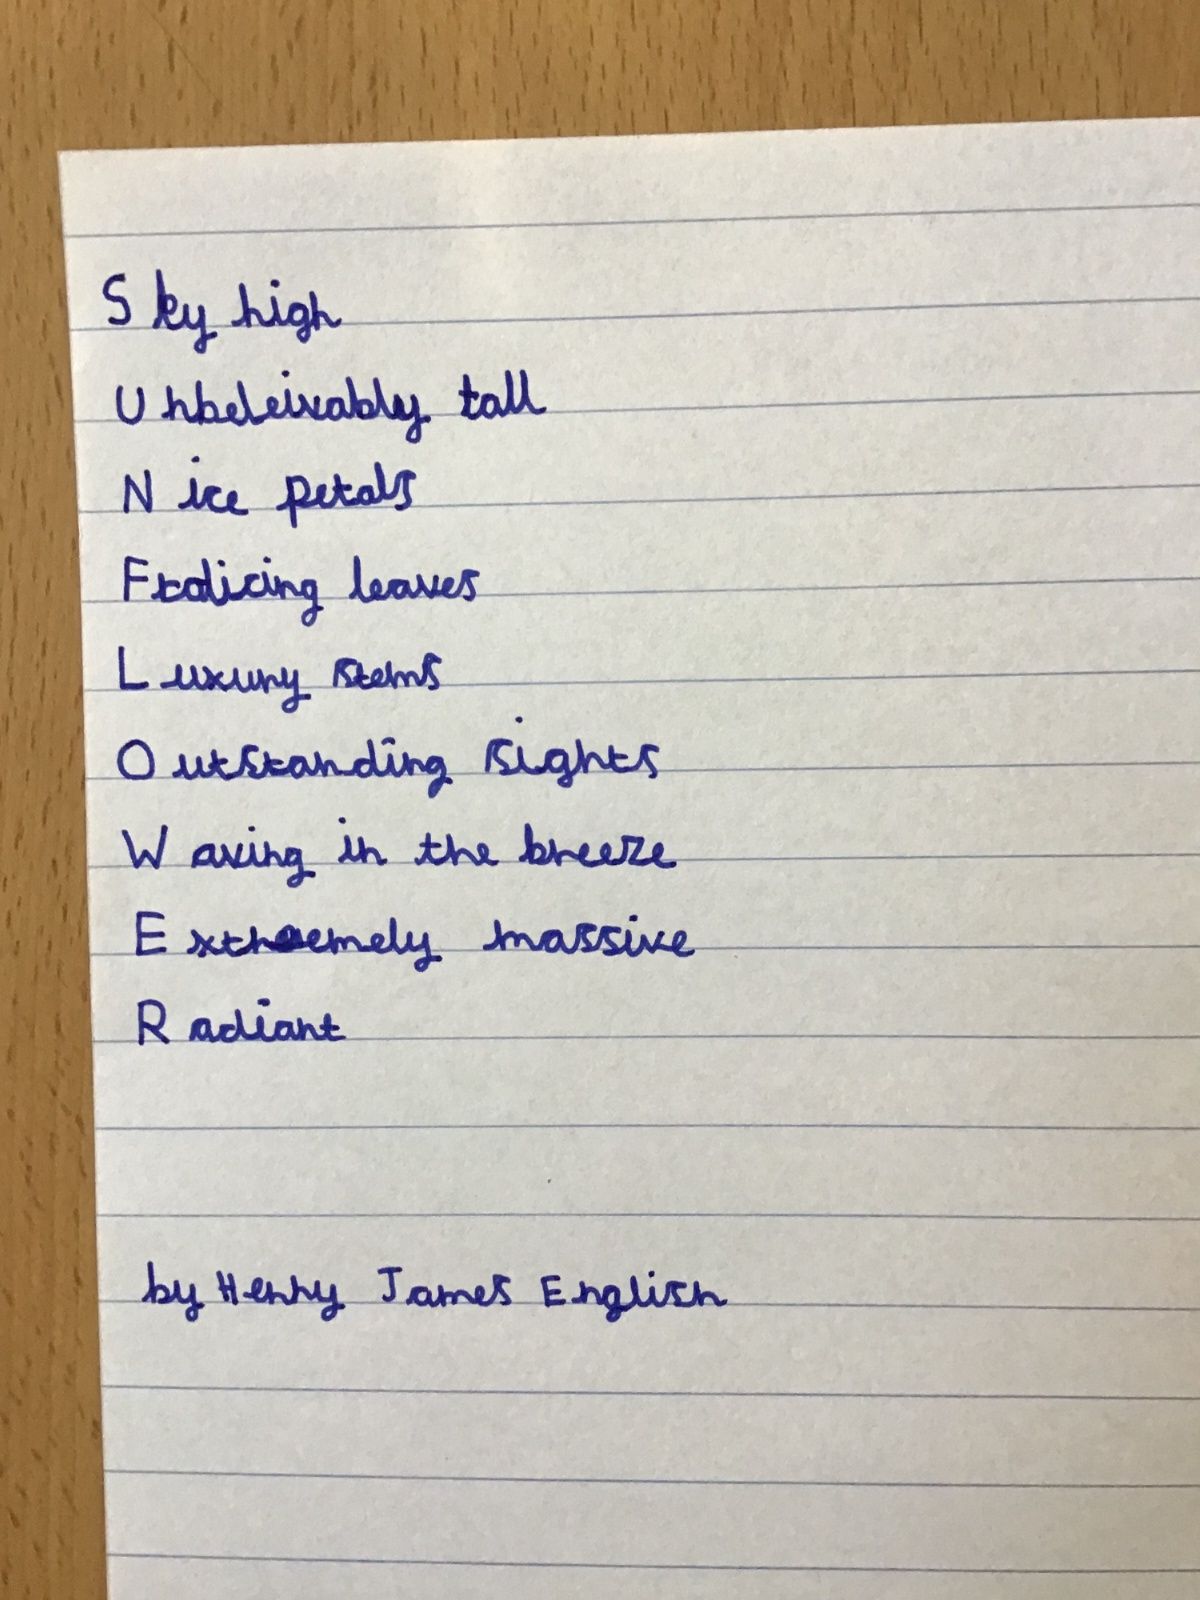 Sky high
Unbeleivably tall
Nice petals
Frolicing leaves
Luxury stems
Outstanding sights
Waving in the breeze
Extreemely massive
Radiant
by Henry James English